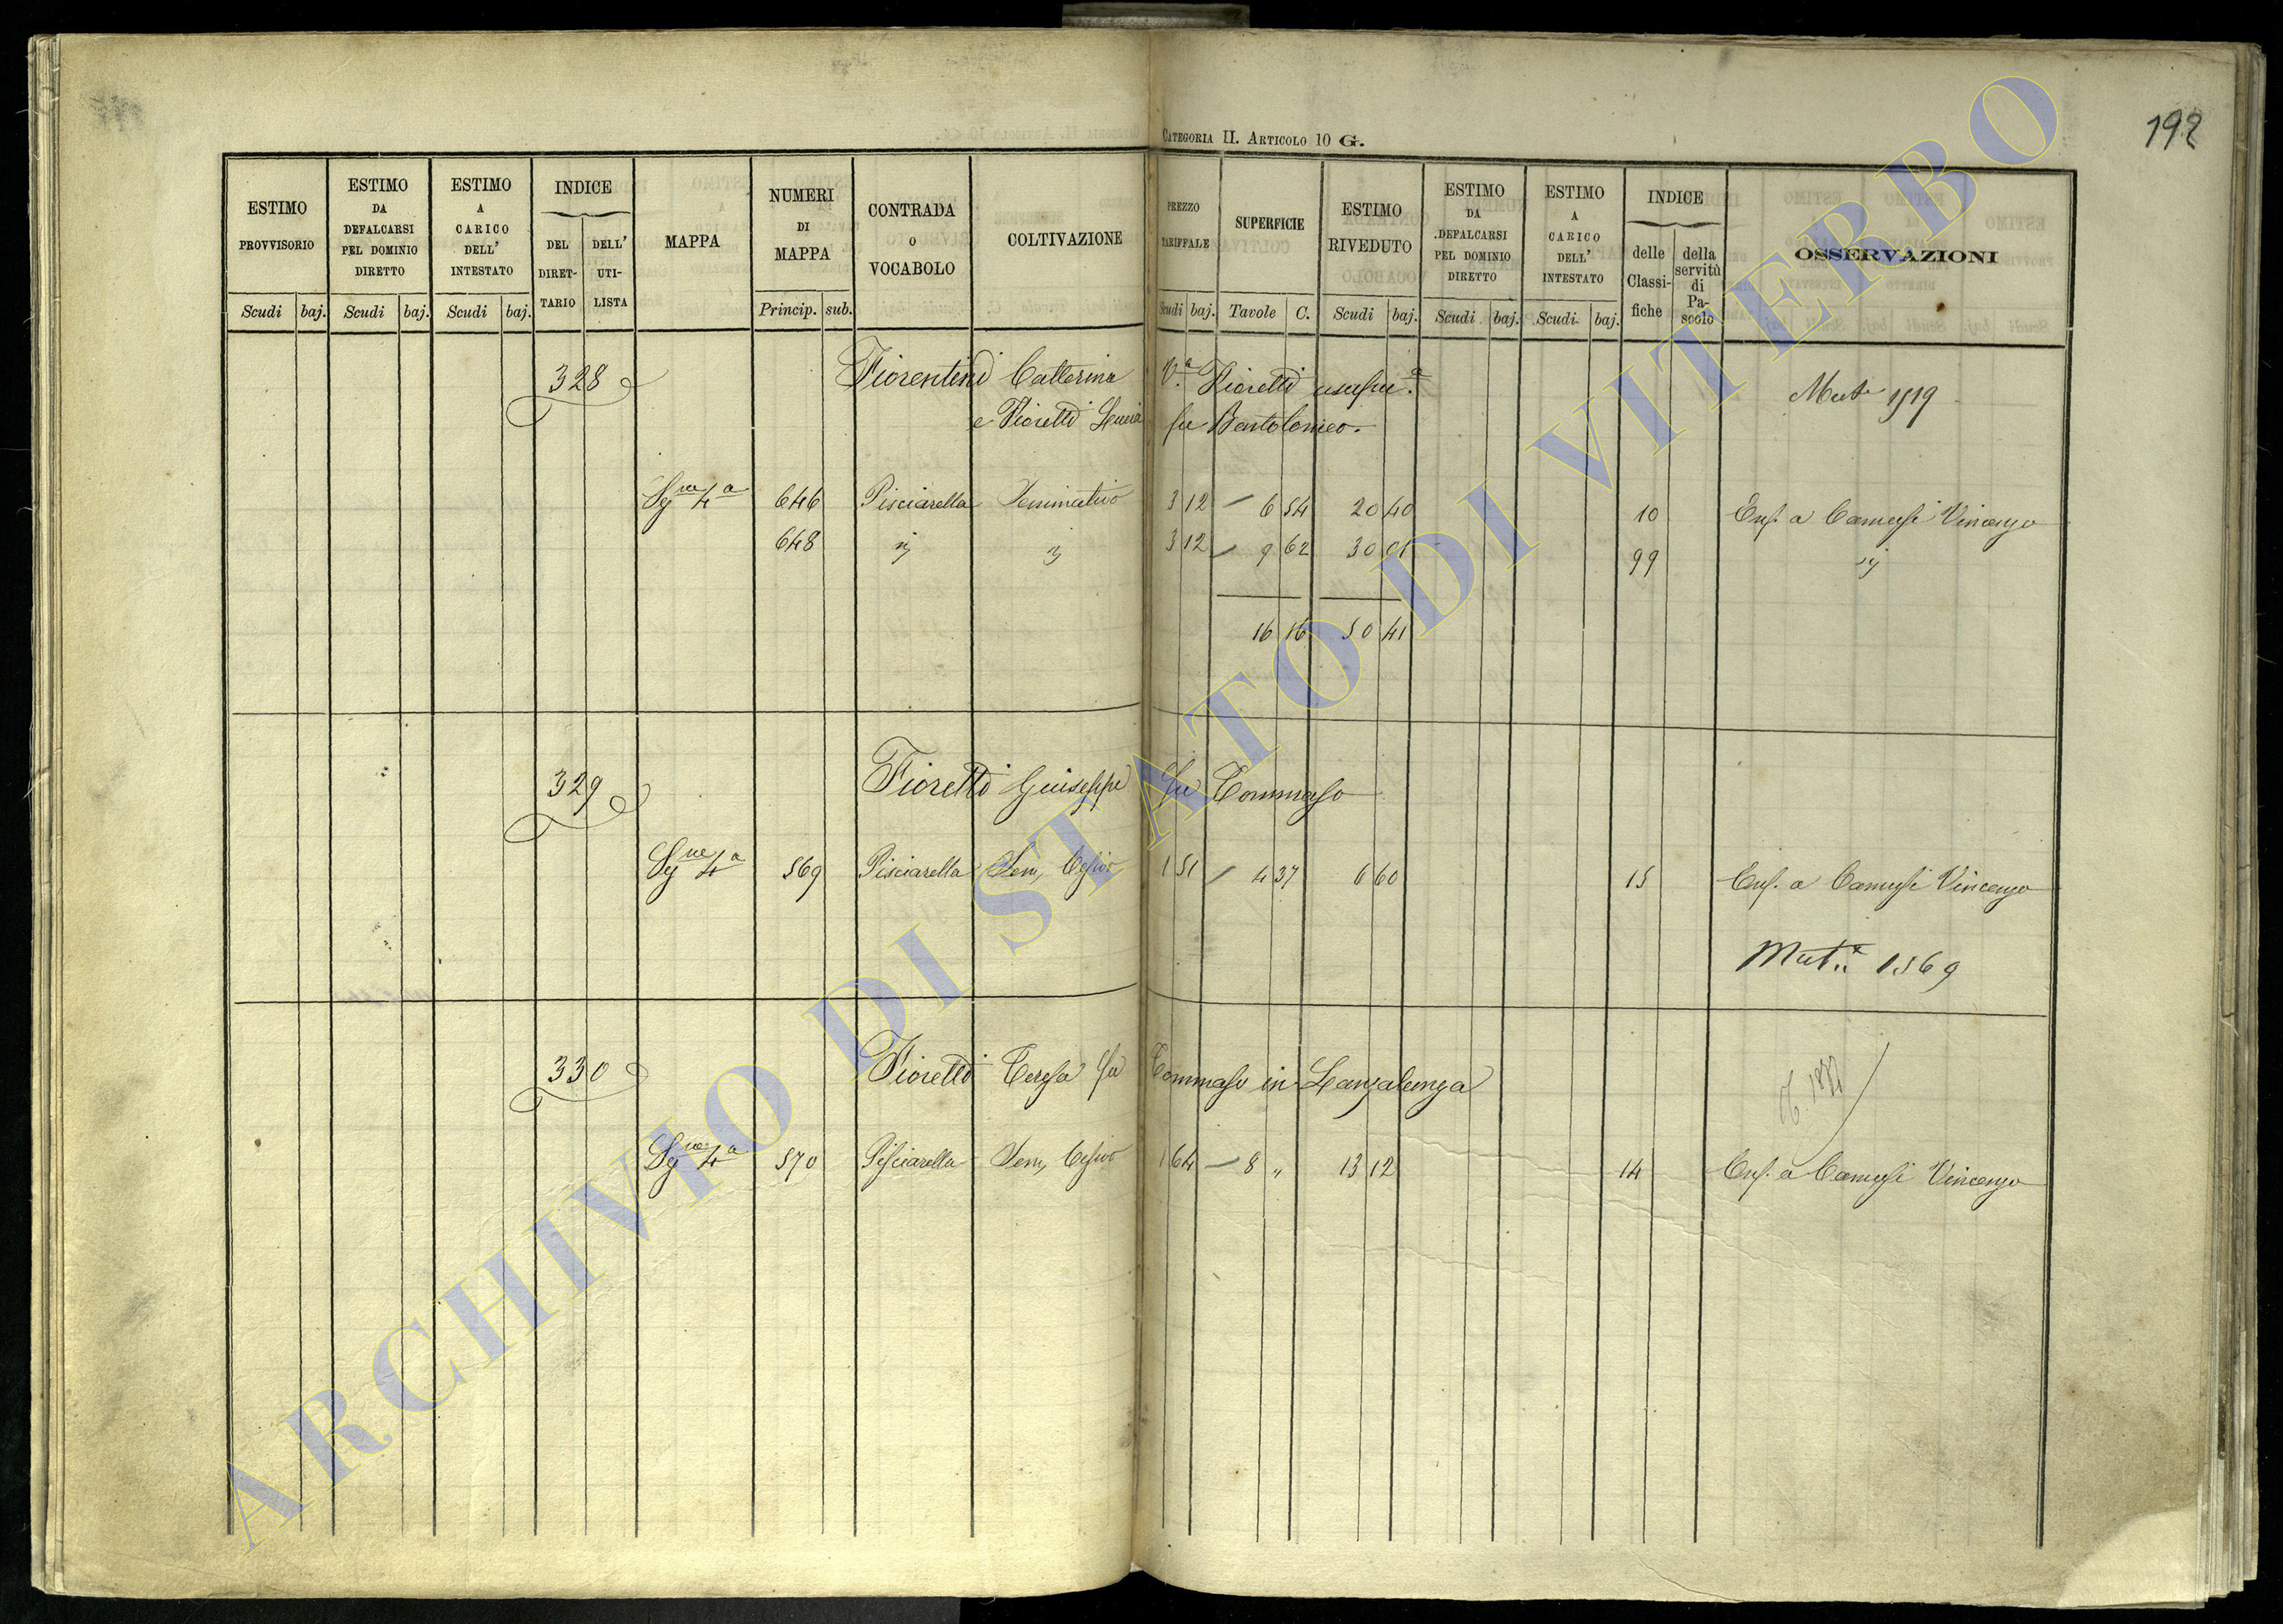 CATEGORIA II. ARTICOLO 10 G.
192
ESTIMO PROVVISORIO Scudi baj.
ESTIMO DA DEFALCARSI PEL DOMINIO DIRETTO Scudi baj.
ESTIMO A CARICO DELL' INTESTATO Scudi baj.
INDICE DEL DIRET-TARIO DELL' UTI-LISTA
MAPPA
NUMERI DI MAPPA Princip. sub.
CONTRADA O VOCABOLO
COLTIVAZIONE
PREZZO TARIFFALE Scudi baj.
SUPERFICIE Tavole C.
ESTIMO RIVEDUTO Scudi baj.
ESTIMO DA DEFALCARSI PEL DOMINIO DIRETTO Scudi baj.
ESTIMO A CARICO DELL' INTESTATO Scudi baj.
INDICE delle Classi-fiche della servitù di Pa-scolo
OSSERVAZIONI
328 Fiorentini Catterina Va Fioretti usufra Mut 1519
e Fioretti Lucia fu Bartolomeo
Sgne 4a 646 Pisciarella Seminativo 3 12 6 54 20 40 10 Enf. a Camusi Vincenzo
648 3 12 9 62 30 01 99
16 16 50 41
329 Fioretti Giuseppe fu Tommaso
Sgne 4a 569 Pisciarella Sem, Cesivo 1 51 4 37 6 60 15 Enf. a Camusi Vincenzo
Muta 1569
330 Fioretti Teresa fu Tommaso in Lanzalunga
Sgne 4a 570 Pisciarella Sem, Cesivo 1 64 8 " 13 12 14 Enf. a Camusi Vincenzo
ARCHIVIO DI STATO DI VITERBO